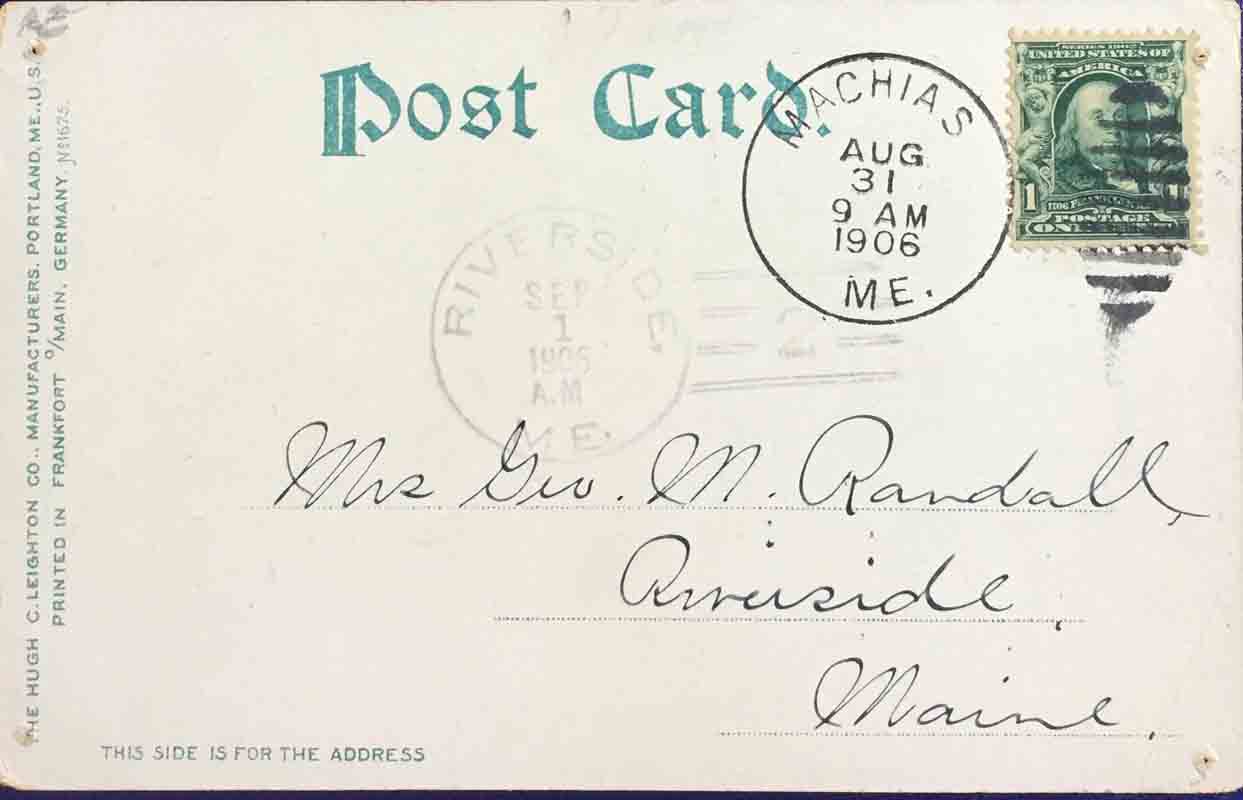 Post Card.
MACHIAS
AUG
31
9 AM
1906
ME.
SERIES 1902
UNITED STATES OF
AMERICA
1
1706 FRANKLIN
POSTAGE
ON
RIVERSIDE
SEP
1
1906
A.M
ME.
2
Mrs Geo. M. Randall,
Riverside,
Maine,
THIS SIDE IS FOR THE ADDRESS
THE HUGH C. LEIGHTON CO., MANUFACTURERS, PORTLAND, ME., U.S.
PRINTED IN FRANKFORT O/MAIN, GERMANY. No 1675.